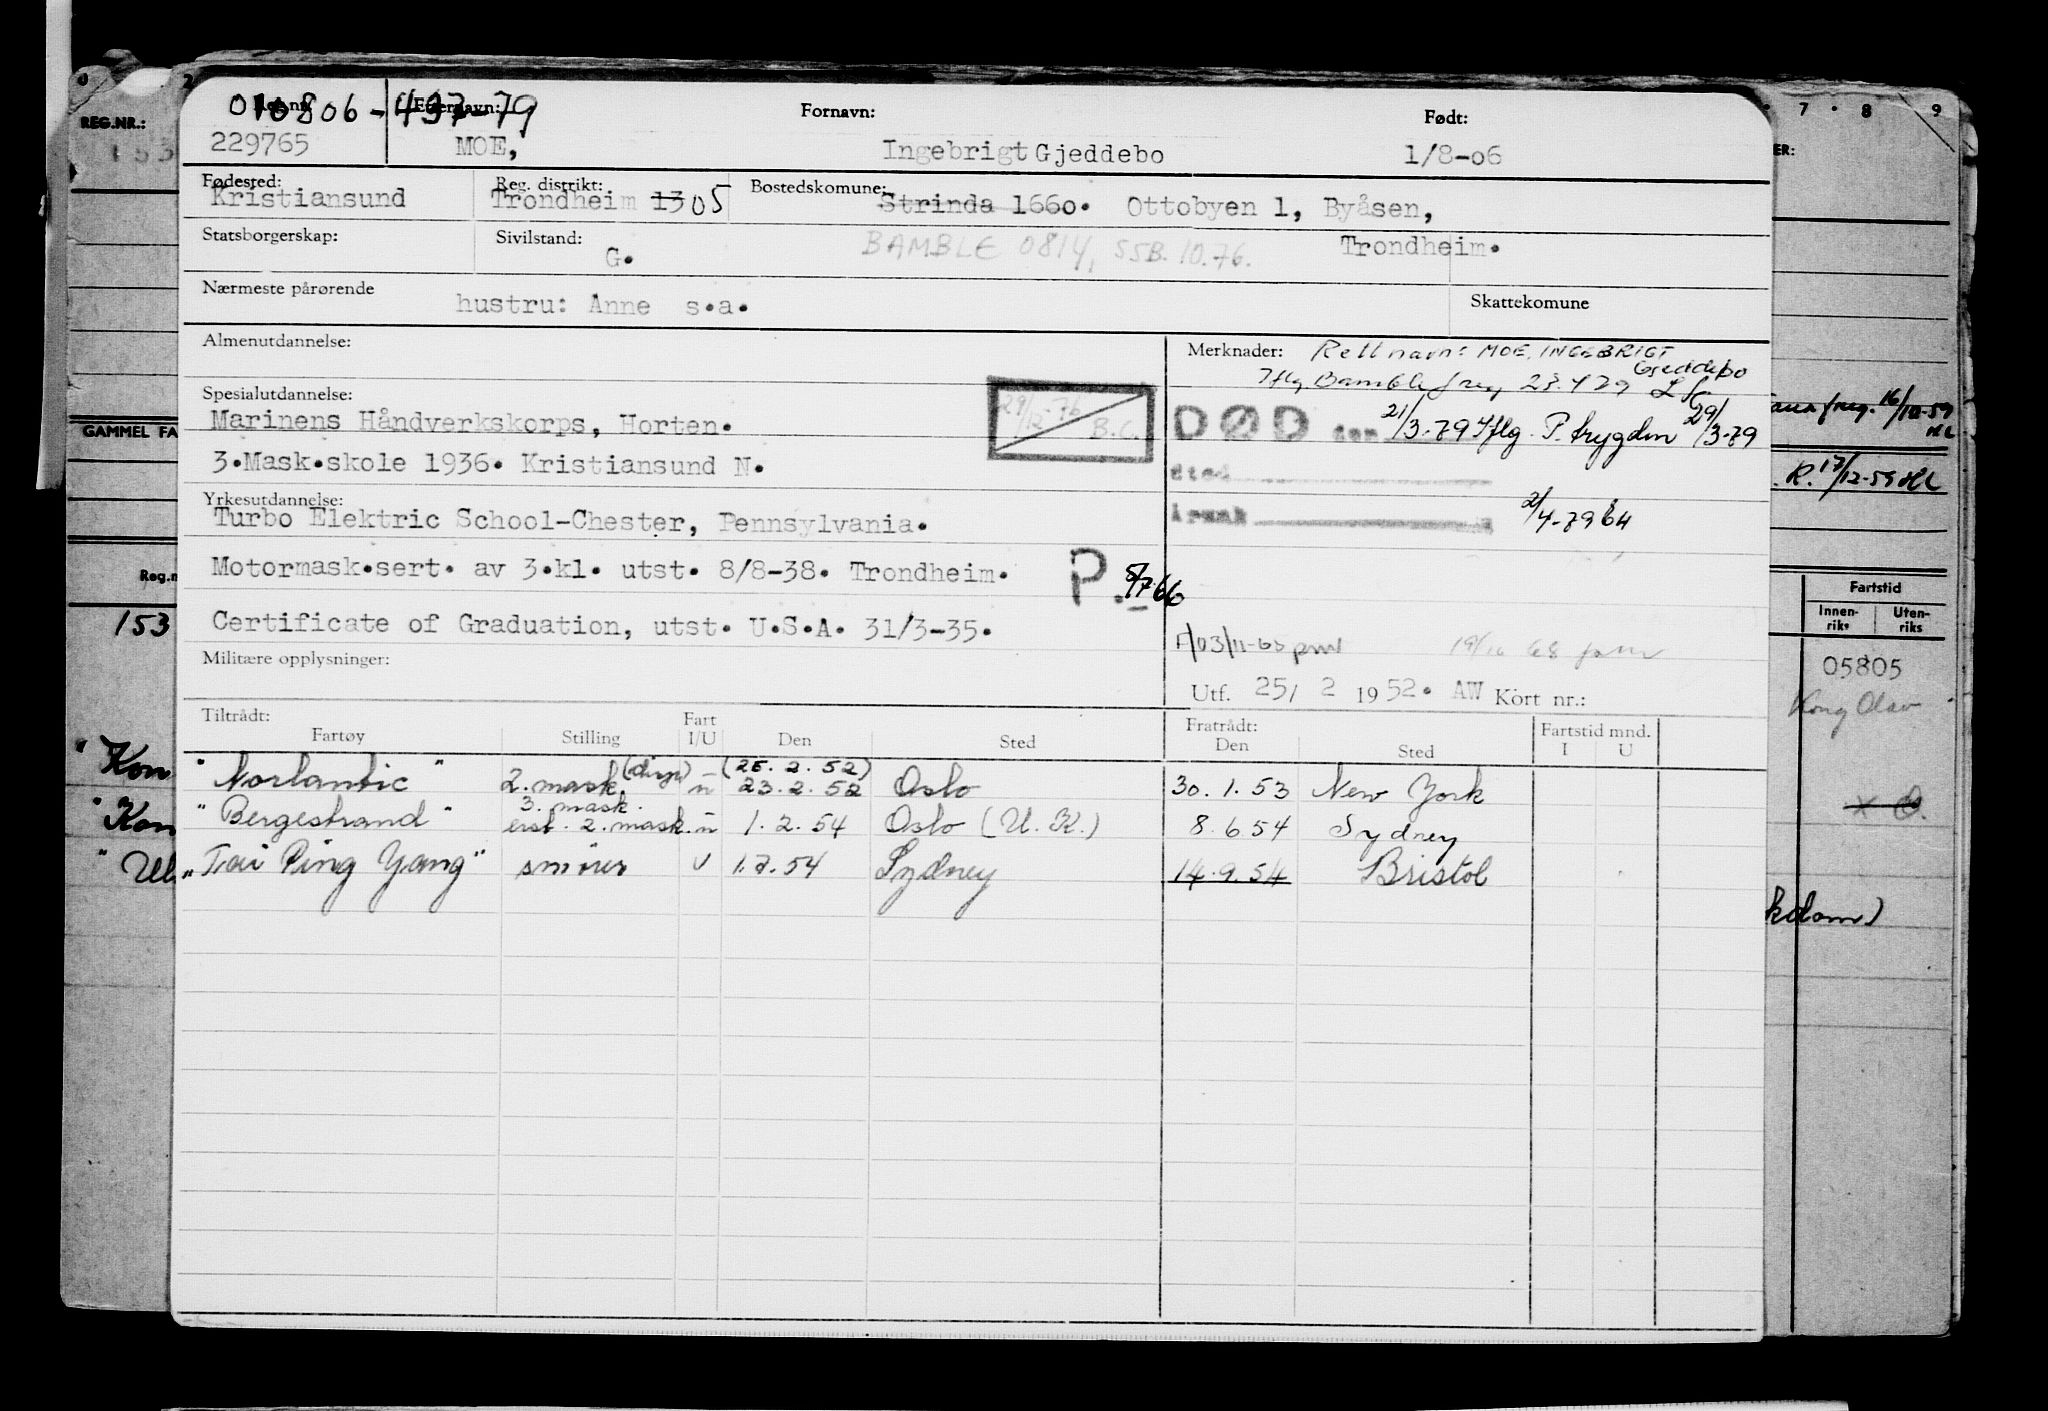 Reg.nr. Etternavn: Fornavn: Født:
010806-497-79
229765 MOE, Ingebrigt Gjeddebo 1/8-06
Fødested: Reg. distrikt: Bostedskomune:
Kristiansund Trondheim 13 05 Strinda 1660. Ottobyen 1, Byåsen,
Statsborgerskap: Sivilstand: G. BAMBLE 0814, SSB. 10.76. Trondheim.
Nærmeste pårørende hustru: Anne s.a. Skattekomune
Almenutdannelse:
Merknader: Rett navn: MOE, INGEBRIGT
Gjeddebo
Iflg Bamble f reg 23.4 79
Spesialutdannelse:
29/12-76 B.C.
Marinens Håndverkskorps, Horten.
DØD den 21/3-79 iflg. P. trygden 29/3-79
3.Mask.skole 1936. Kristiansund N.
sted
Yrkesutdannelse:
Turbo Elektric School-Chester, Pennsylvania.
årsak 2/4-79
Motormask.sert. av 3.kl. utst. 8/8-38. Trondheim.
P. 5/7 66
Certificate of Graduation, utst. U.S.A. 31/3-35.
Militære opplysninger:
Utf. 25/ 2 1952. AW Kort nr.:
Tiltrådt: Fratrådt: Fartstid mnd.
Fartøy Stilling Fart I/U Den Sted Den Sted I U
"Norlantic" 2. mask. (disp) u (25.2.52) 23.2.52 Oslo 30.1.53 New York
"Bergestrand" 3. mask. erst. 2. mask. u 1.2.54 Oslo (U.K.) 8.6 54 Sydney
"Tai Ping Yang" smører U 1.7.54 Sydney 14.9.54 Bristol
REG.NR.:
153
GAMMEL FA
Reg.n
153
"Kon
"Kon
"
7 8 9
ER:
f reg. 16/10-59
R. 17/12-59
Fartstid
Innen-riks Uten-riks
05805
Kong Olav
kdam)